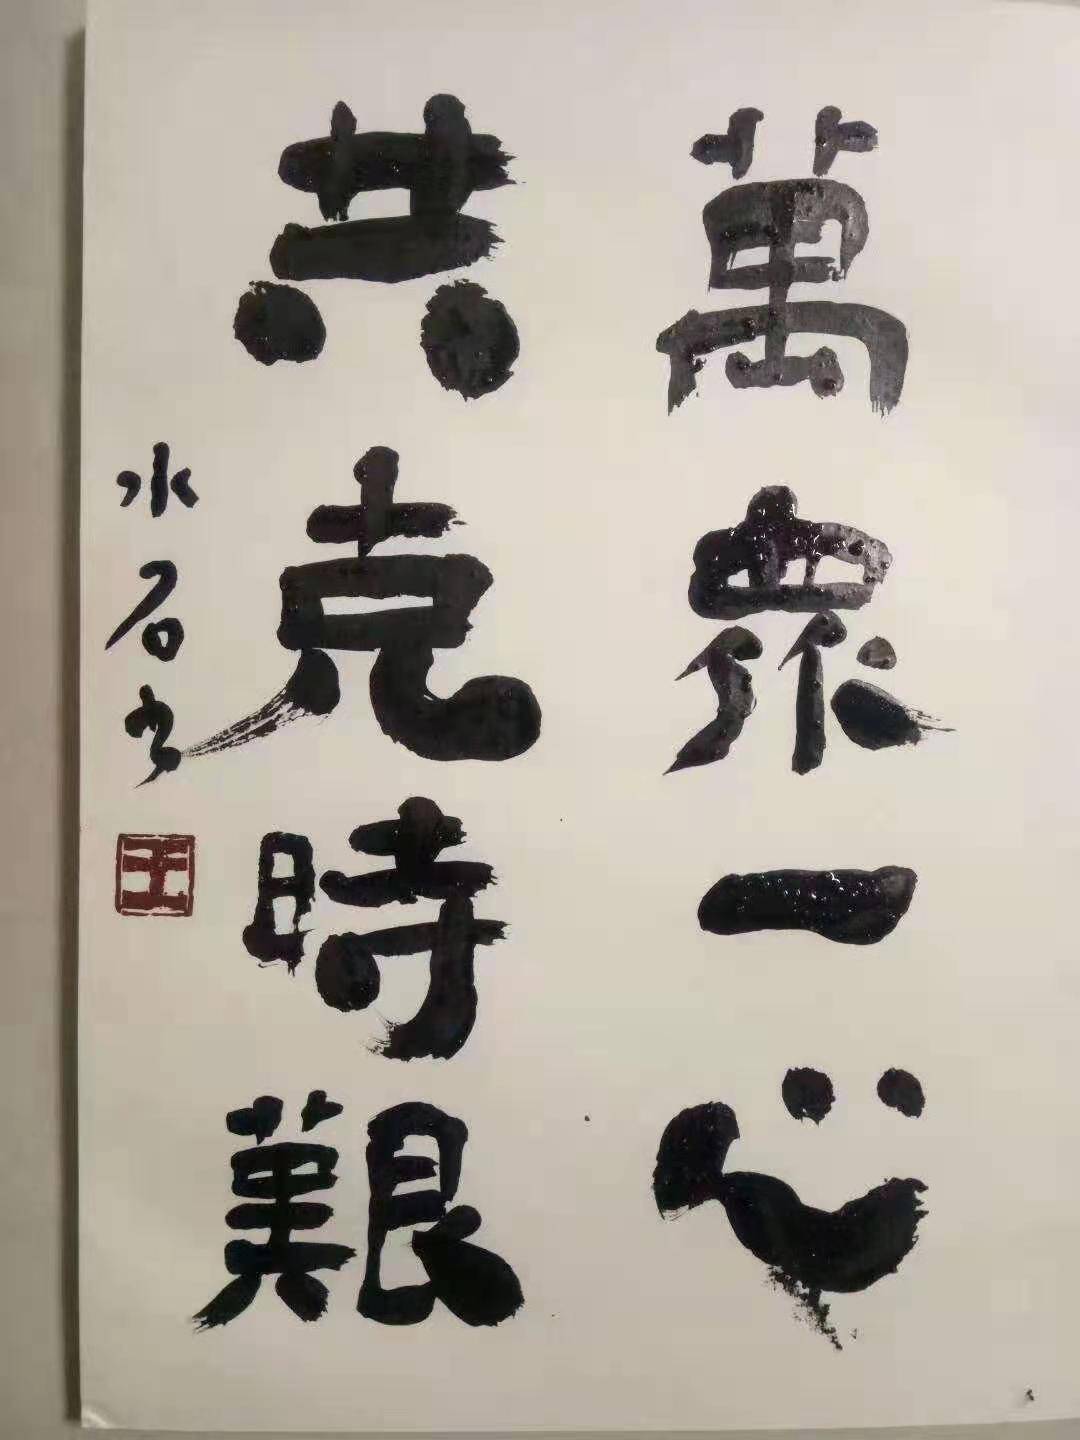 萬眾一心
共克時艱
水石书
王